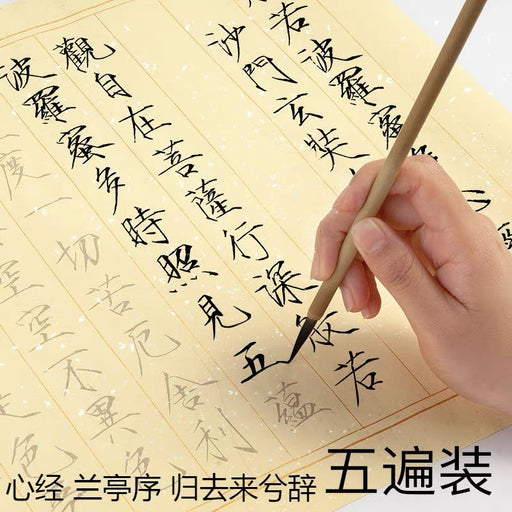 若波羅蜜
沙門玄奘
觀自在菩薩行深般若
波羅蜜多時照見五蘊
度一切苦厄舍利
空空不異色
色
心经 兰亭序 归去来兮辞 五遍装